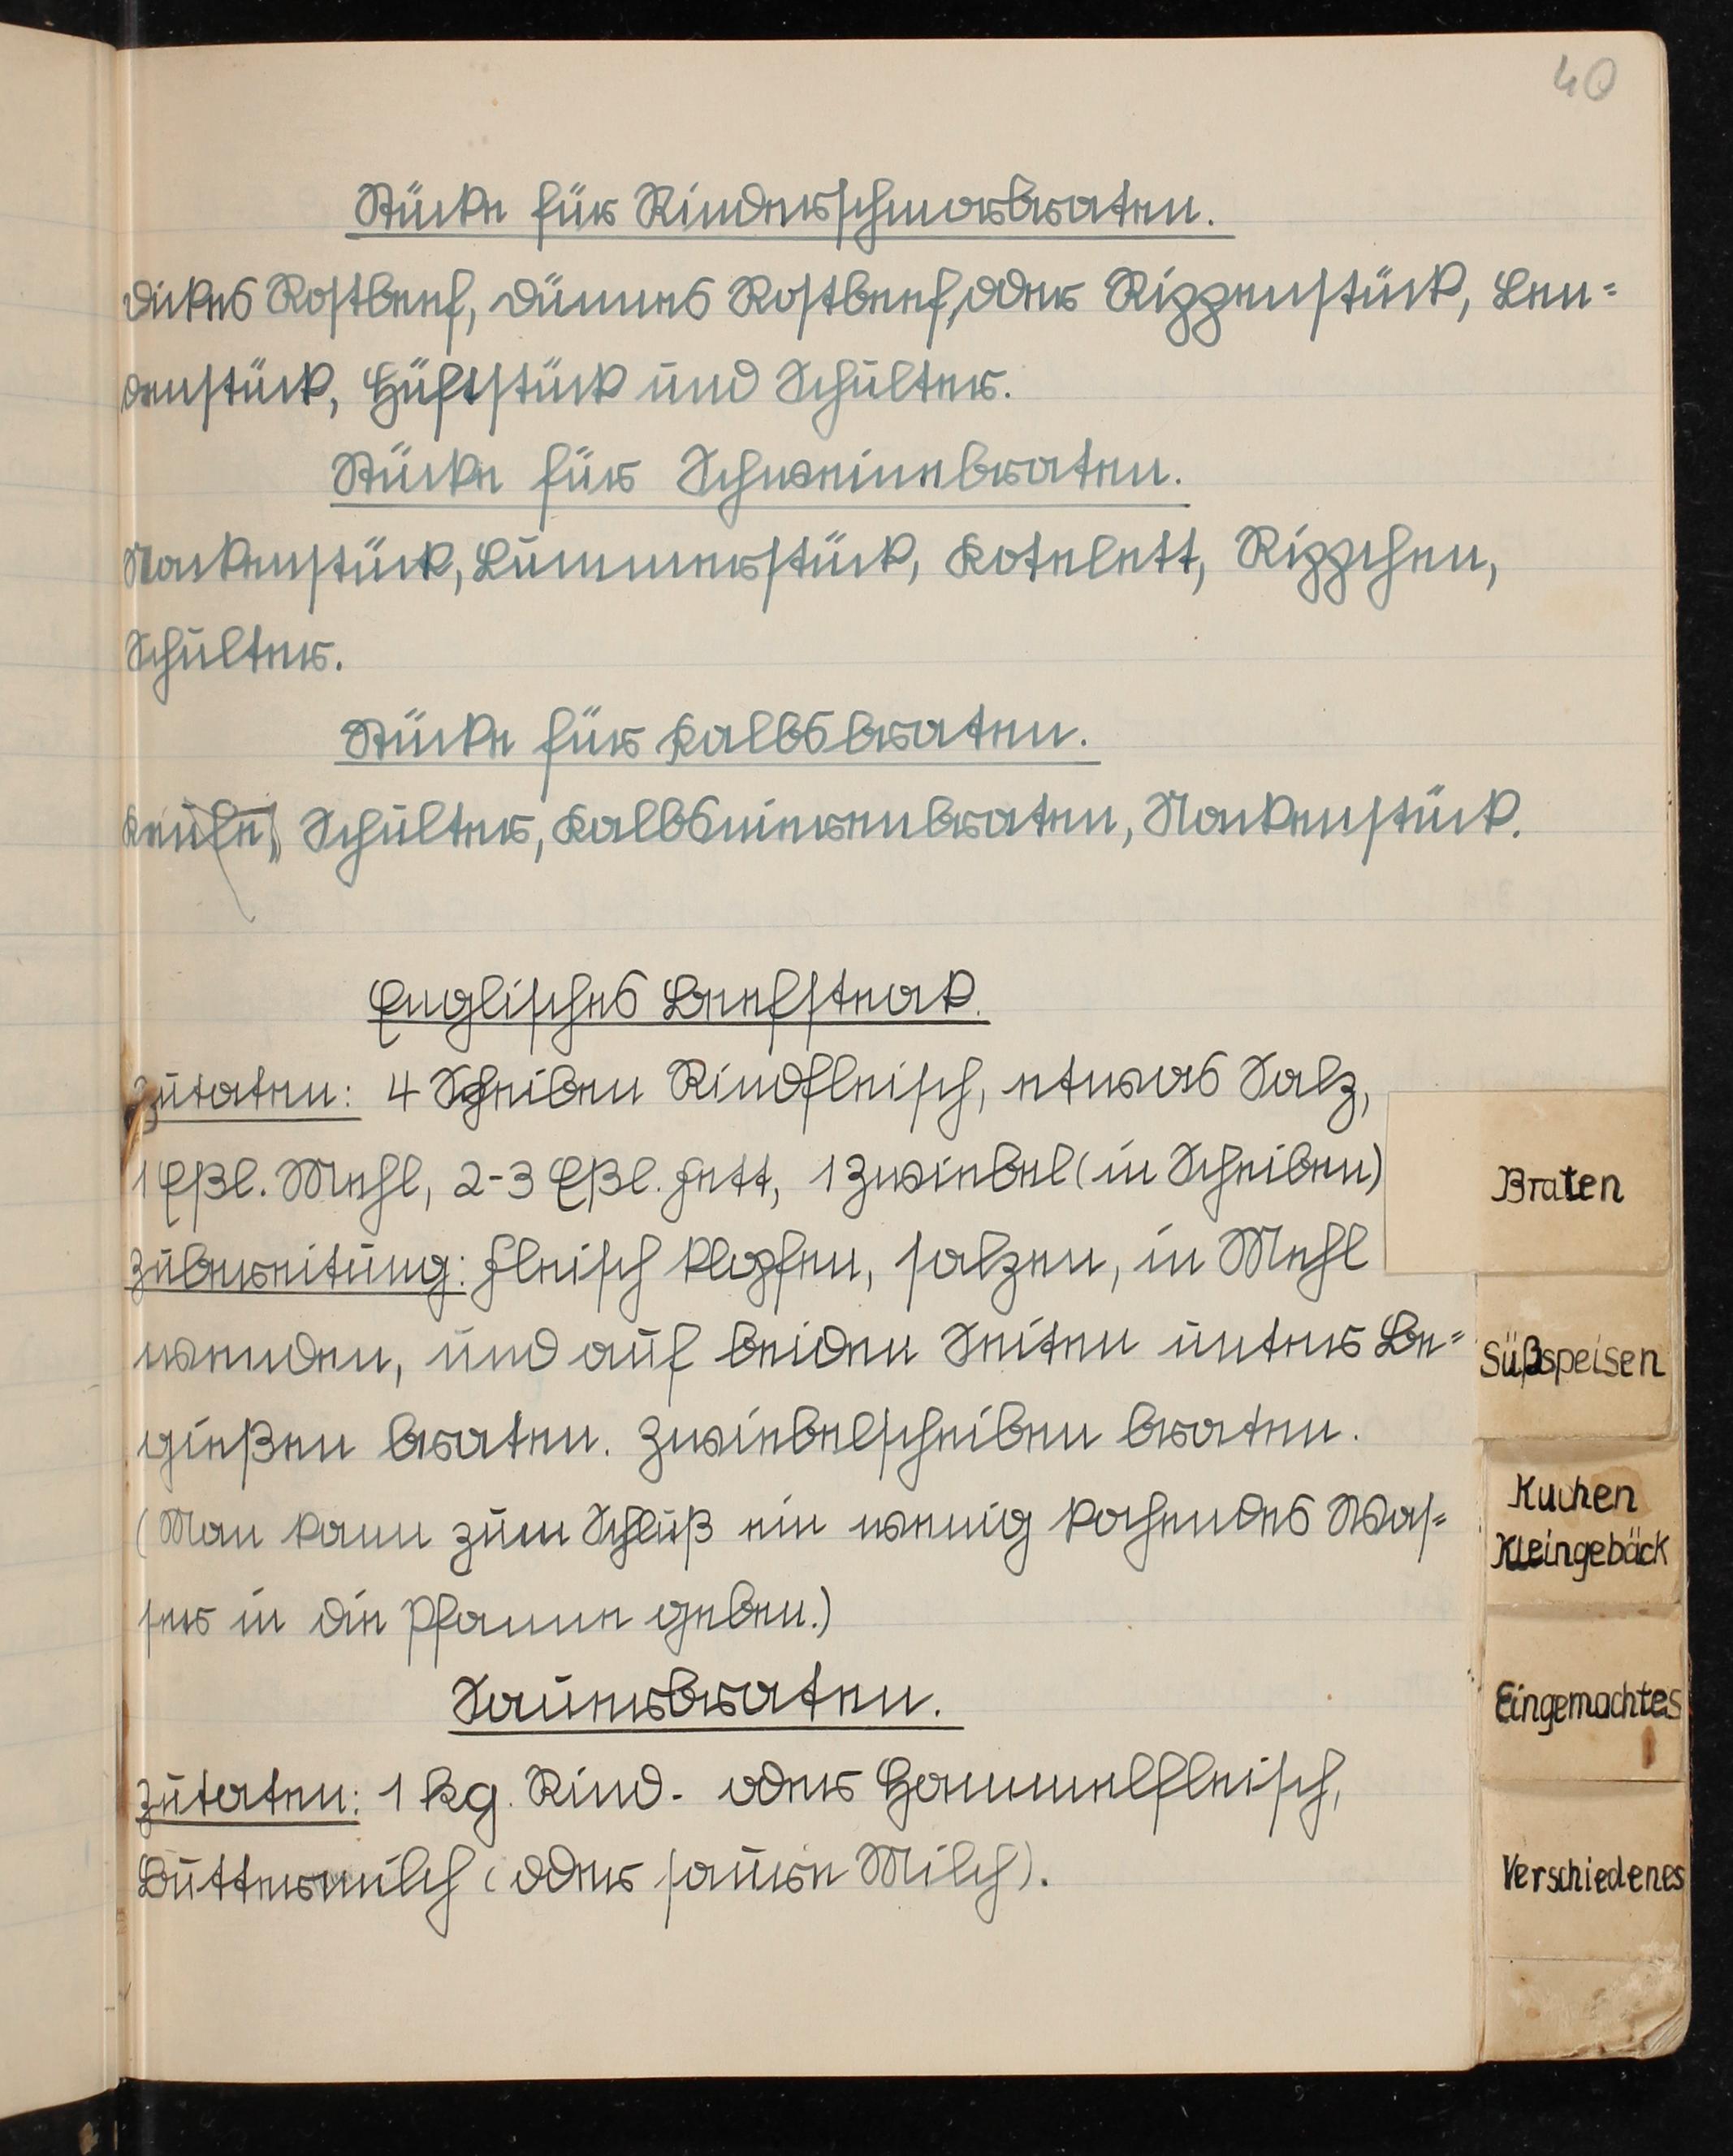 40
Stücke für Rinderschmorbraten.
Dickes Rostbeef, dünnes Rostbeef, oder Rippenstück, Len=
denstück, Hüftstück und Schulter.
Stücke für Schweinebraten.
Nackenstück, Lummerstück, Kotelett, Rippchen,
Schulter.
Stücke für Kalbsbraten.
Keule, Schulter, Kalbsnierenbraten, Nackenstück.
Englisches Beefsteak.
Zutaten: 4 Scheiben Rindfleisch, etwas Salz,
1 Eßl. Mehl, 2-3 Eßl. Fett, 1 Zwiebel (in Scheiben)
Zubereitung: Fleisch klopfen, salzen, in Mehl
wenden, und auf beiden Seiten unter Be=
gießen braten. Zwiebelscheiben braten.
(Man kann zum Schluß ein wenig kochendes Was=
ser in die Pfanne geben.)
Sauerbraten.
Zutaten: 1 kg. Rind- oder Hammelfleisch,
Buttermilch (oder saure Milch).
Braten
Süßspeisen
Kuchen
Kleingebäck
Eingemachtes
Verschiedenes